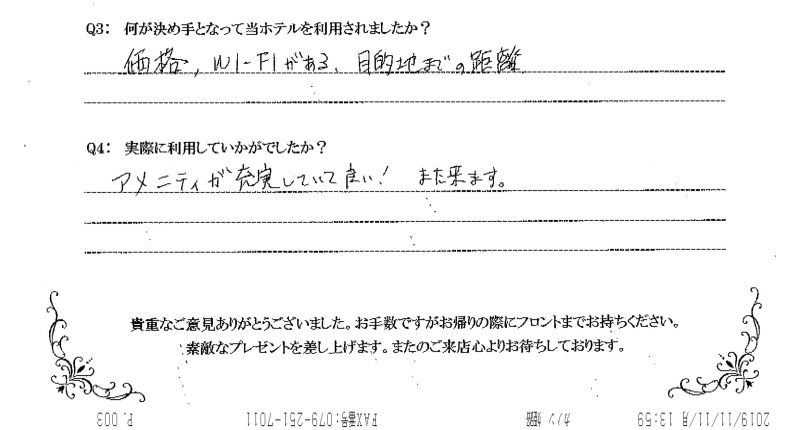 Q3: 何が決め手となって当ホテルを利用されましたか?
価格, WI-FIがある、目的地までの距離
Q4: 実際に利用していかがでしたか?
アメニティが充実していて良い! また来ます。
貴重なご意見ありがとうございました。お手数ですがお帰りの際にフロントまでお持ちください。
素敵なプレゼントを差し上げます。またのご来店心よりお待ちしております。
2019/11/11/月 13:59 カノン 姫路 FAX番号:079-251-7011 P. 003